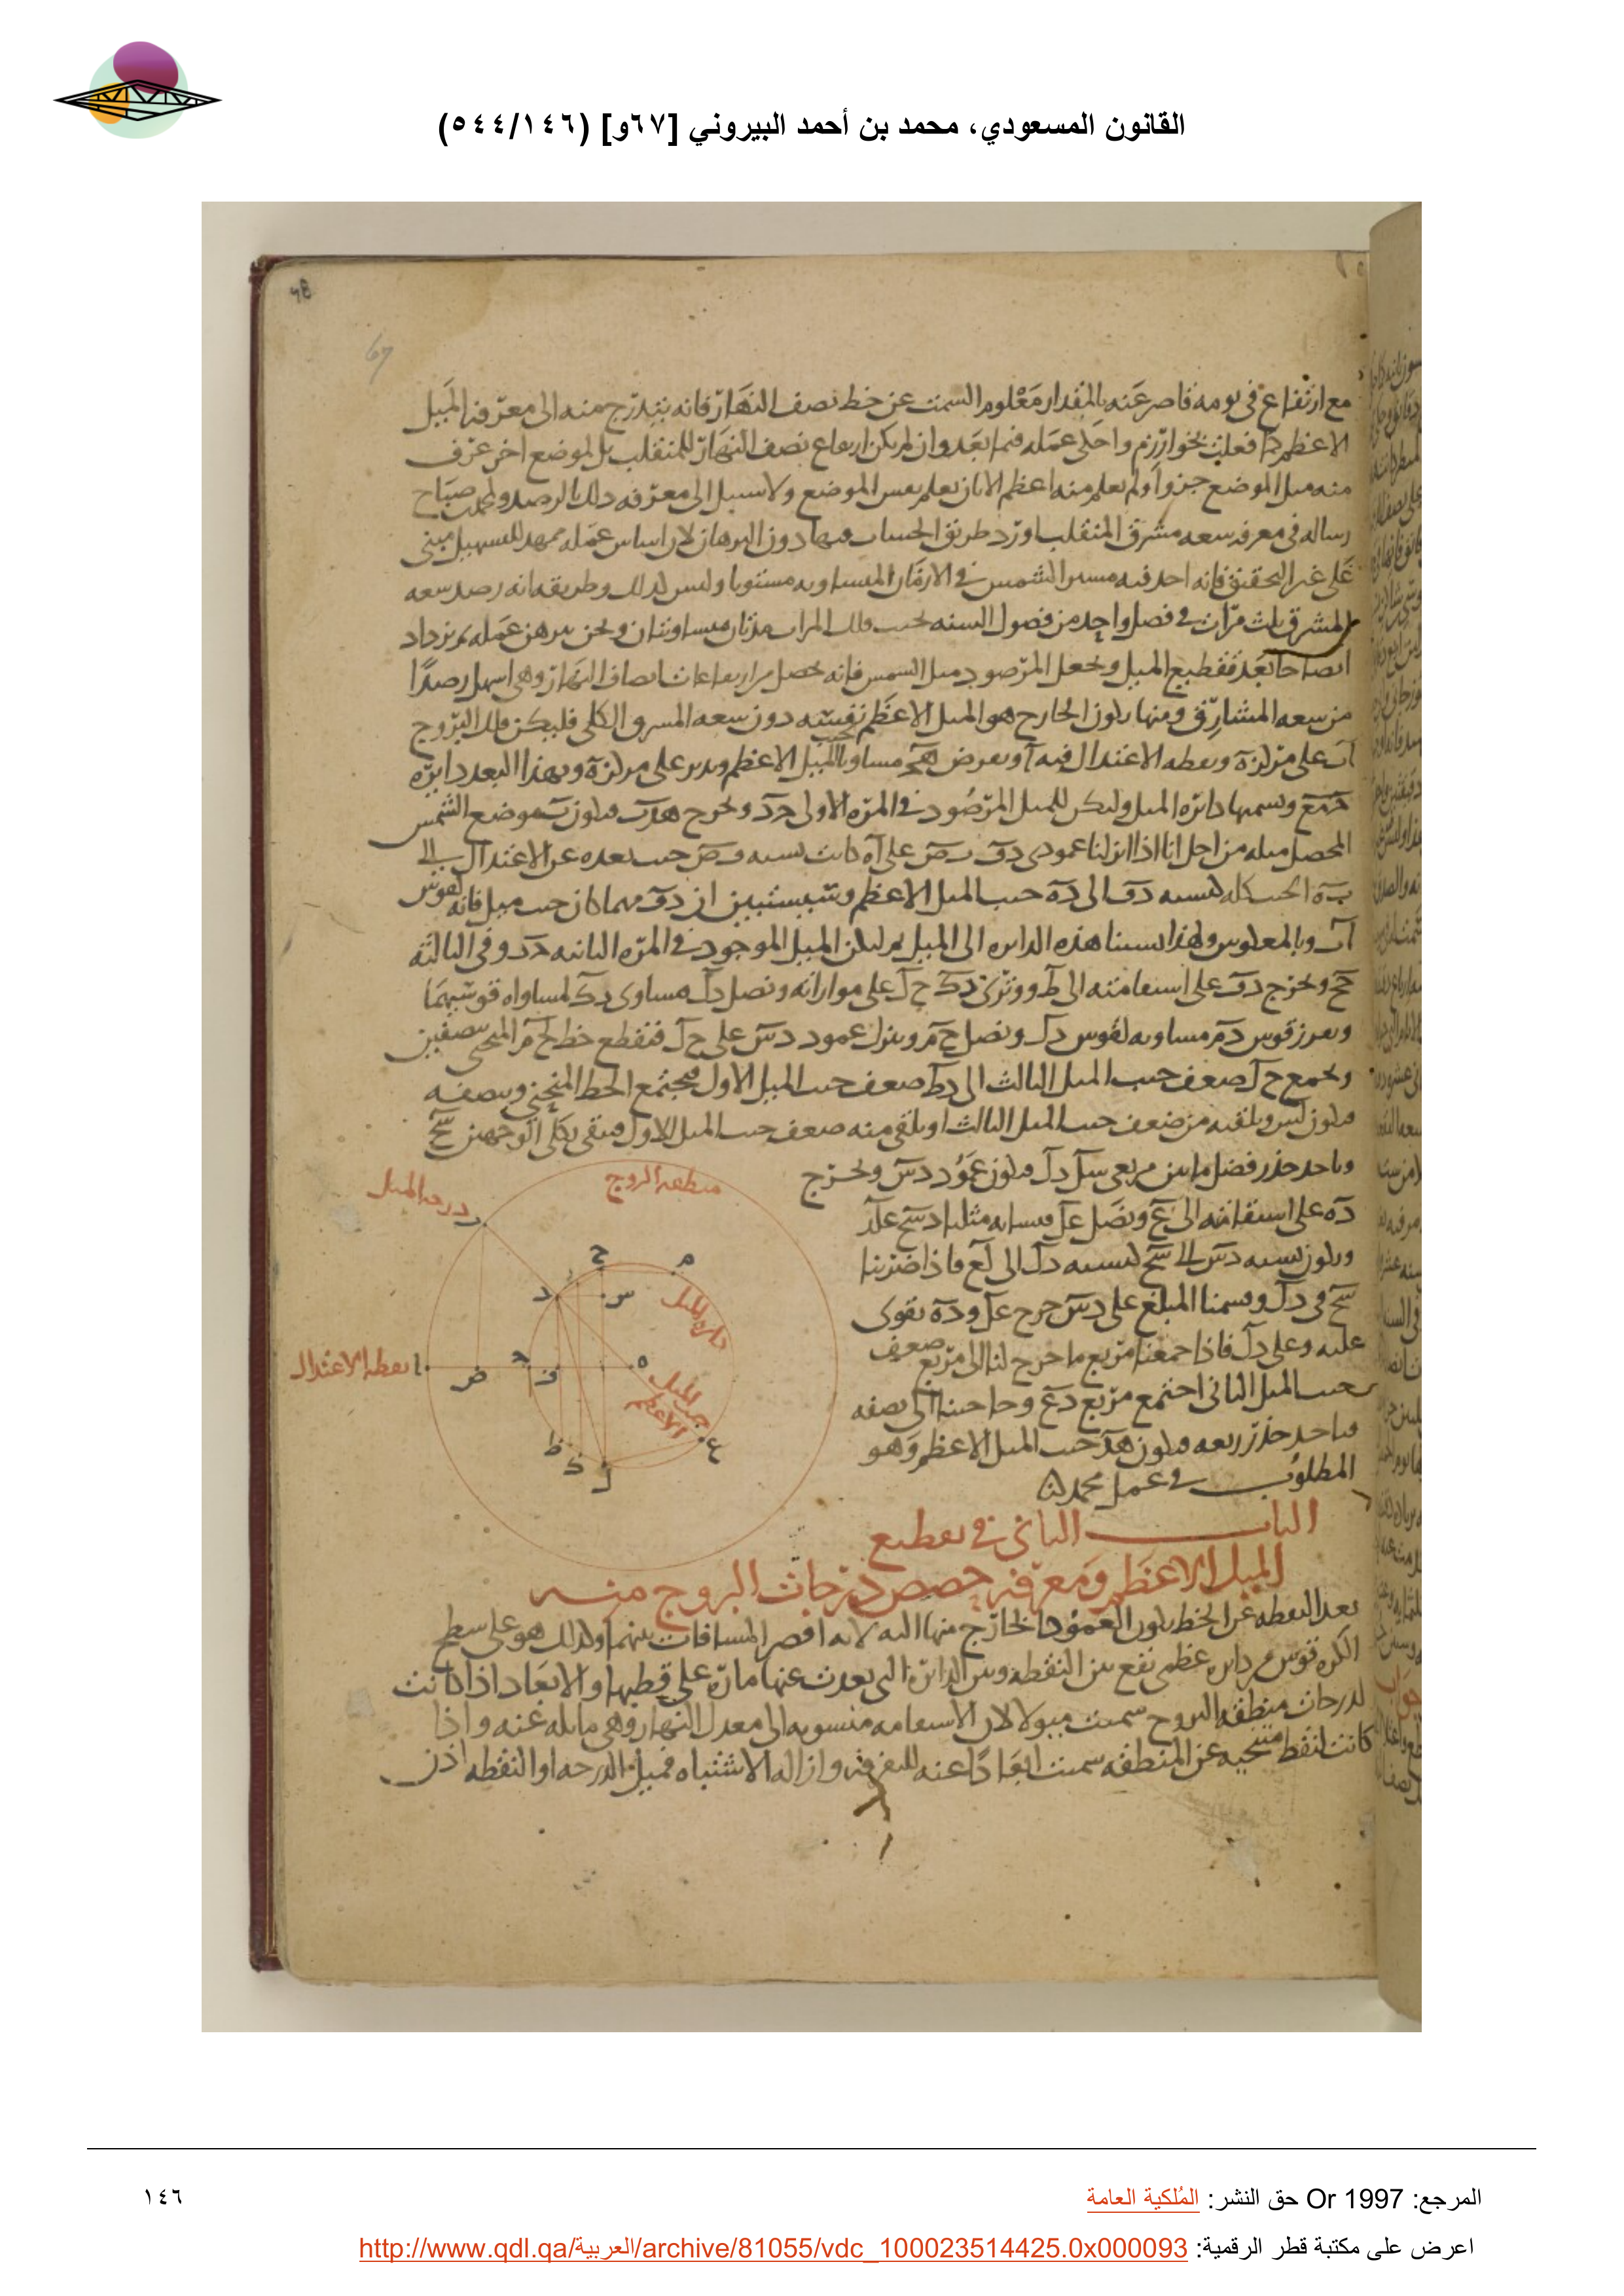 القانون المسعودي، محمد بن أحمد البيروني [٦٧و] (٥٤٤/١٤٦)
67
مع ارتفاع في يومه قاصر عنه بالمقدار معلوم السمت عن خط نصف النهار فانه يتدرج منه الى معرفة الميل
الاعظم كما فعلت بخوارزم واحلى عمله فيما بعد وان لم يكن ارتفاع نصف النهار للمنقلب بل لموضع اخر عرف
منه ميل الموضع جزوا ولم يعلم منه اعظم الا بان يعلم نفس الموضع ولا سبيل الى معرفة ذلك بالرصد ولمحمد بن صباح
رساله في معرفة سعه مشرق المنقلب اورد طريق الحساب فيها دون البرهان لان اساس عمله ممهد للتسهيل مبنى
على غير التحقيق فانه اخذ فيه مسير الشمس في الازمان المتساويه مستويا وليس كذلك وطريقه انه رصد سعه
المشرق ثلث مرات في فصل واحد من فصول السنه تحيث تلك المرات مدتان متساويتان ونحن نبرهن عمله ثم نزداد
ايضاحا بعد تقطيع الميل ونجعل المرصود ميل الشمس فانه يحصل من ارتفاعات انصاف النهار وهي اسهل رصدا
من سعه المشارق ومنها يكون الخارج هو الميل الاعظم نفسه دون سعه المشرق الكلى فليكن فلك البروج
آب على مركز ه ونقطه الاعتدال فيه آ ونفرض هج مساويا لجيب الميل الاعظم وندير على مركز ه وبهذا البعد دايرة
جمع ونسميها دائره الميل وليكن للميل المرصود في المره الاولى جد ونخرج هدب فيكون ب موضع الشمس
المحصل ميله من اجل انا اذا انزلنا عمودى دف بص على آه كانت نسبه بص جيب بعده عن الاعتدال الى
به الجيب كله كنسبه دف الى ده جيب الميل الاعظم وسيستبين ان دف مهما كان جيب ميل فانه لقوس
آب وبالمعكوس ولهذا نسبنا هذه الدايره الى الميل ثم ليكن الميل الموجود في المره الثانيه جز وفي الثالثه
جح ونخرج دف على استقامته الى ط ووترى زك حل على موازاته ونصل دل مساوى زك لمساواه قوسيهما
ونفرز قوس دم مساويه لقوس دل ونصل حم وننزل عمود دس على حل فنقطع خط لحم المنحنى بنصفين
ونجمع حل ضعف جيب الميل الثالث الى دط ضعف جيب الميل الاول فيجتمع الخط المنحنى ونصفه
فيكون لس ونلقيه من ضعف جيب الميل الثالث او نلقى منه ضعف جيب الميل الاول فيبقى بكلى الوجهين سح
وناخذ جذر فضل ما بين مربعى سل دل فيكون عمود دس ونخرج
ده على استقامته الى ع ونصل عل فيشابه مثلثا دسح علد
ويكون نسبه دس الى سح كنسبه دل الى لع فاذا ضربنا
سح في دل وقسمنا المبلغ على دس خرج عل وده يقوى
عليه وعلى دل فاذا جمعنا مربع ما خرج لنا الى مربع ضعف
جيب الميل الثانى اجتمع مربع دع وحاجتنا الى نصفه
فناخذ جذر ربعه فيكون هد جيب الميل الاعظم وهو
المطلوب في عمل محمد
منطقه البروج
درجه الميل
دائره الميل
جيب الميل الاعظم
نقطه الاعتدال
الباب الثانى في تقطيع
الميل الاعظم ومعرفة حصص درجات البروج منه
بعد النقطه عن الخط يكون العمود الخارج منها اليه لانه اقصر المسافات بينهما وكذلك هو على سطح
الكره قوس دايره عظمى تقع بين النقطه وبين الدائره التى بعدت عنها مارة على قطبها والابعاد اذا كانت
لدرجات منطقه البروج سميت ميولا لان الاستقامه منسوبه الى معدل النهار وهى مايله عنه واذا
كانت لنقط متنحيه عن المنطقه سميت ابعادا عنه للتفرقه وازاله الاشتباه فميل الدرجه او النقطه اذن
المرجع: Or 1997 حق النشر: المُلكية العامة
١٤٦
اعرض على مكتبة قطر الرقمية: http://www.qdl.qa/العربية/archive/81055/vdc_100023514425.0x000093